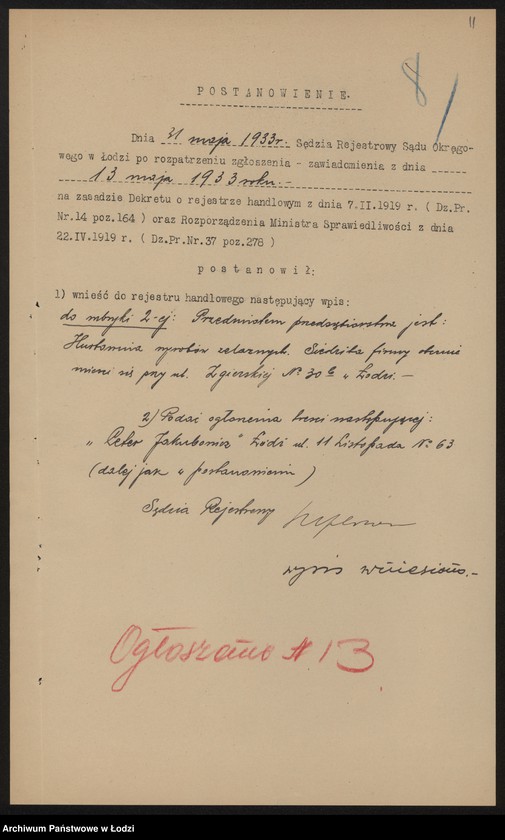 11
8
P O S T A N O W I E N I E.
Dnia 31 maja 1933r. Sędzia Rejestrowy Sądu Okręgo-
wego w Łodzi po rozpatrzeniu zgłoszenia - zawiadomienia z dnia
13 maja 1933 roku -
na zasadzie Dekretu o rejestrze handlowym z dnia 7.II.1919 r. ( Dz.Pr.
Nr.14 poz.164 ) oraz Rozporządzenia Ministra Sprawiedliwości z dnia
22.IV.1919 r. ( Dz.Pr.Nr.37 poz.278 )
p o s t a n o w i ł:
1) wnieść do rejestru handlowego następujący wpis:
do rubryki 2-ej: Przedmiotem przedsiębiorstwa jest:
Hurtownia wyrobów żelaznych. Siedziba firmy obecnie
mieści się przy ul. Zgierskiej № 30 w Łodzi. -
2) Podać ogłoszenia treści następującej:
" Jakubowicz" Łódź ul. 11 Listopada № 63
(dalej jak w postanowieniu)
Sędzia Rejestrowy
wpis wniesiono.-
Ogłoszono № 13
Archiwum Państwowe w Łodzi